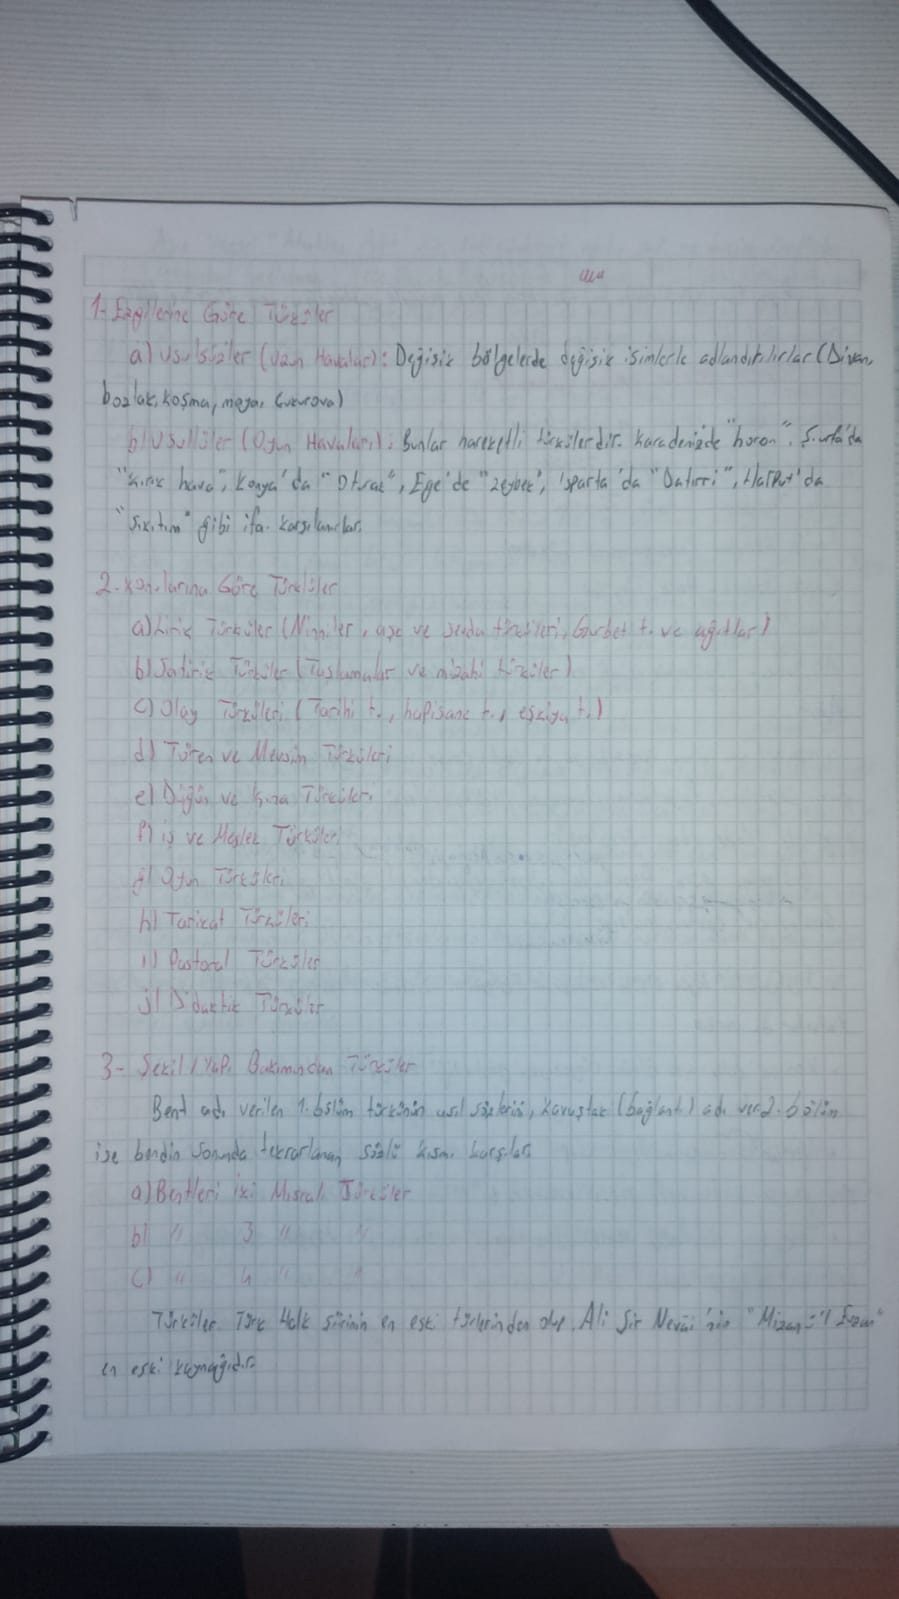 1- Ezgilerine Göre Türküler
a) Usulsüzler (Uzun Havalar): Değişik bölgelerde değişik isimlerle adlandırılırlar (Divan,
bozlak, koşma, maya, Çukurova)
b) Usullüler (Oyun Havaları): Bunlar hareketli türkülerdir. Karadenizde "horon", Ş.urfa'da
"Kırık hava", Konya'da "Oturak", Ege'de "Zeybek", Isparta'da "Datırri", Harput'da
"Şıkıtım" gibi ifa. karşılanırlar.
2. Konularına Göre Türküler
a) Lirik Türküler (Ninniler, aşk ve sevda türküleri, Gurbet t. ve ağıtlar)
b) Satirik Türküler (Taşlamalar ve mizahi türküler)
c) Olay Türküleri (Tarihi t., hapisane t., eşkiya t.)
d) Tören ve Mevsim Türküleri
e) Düğün ve Kına Türküleri
f) İş ve Meslek Türküleri
g) Oyun Türküleri
h) Tarikat Türküleri
ı) Pastoral Türküler
j) Didaktik Türküler
3- Şekil / Yapı Bakımından Türküler
Bent adı verilen 1. bölüm türkünün asıl sözlerini, kavuştak (bağlantı) adı ver 2. bölüm
ise bendin sonunda tekrarlanan sözlü kısmı karşılar.
a) Bentleri iki Mısralı Türküler
b) " 3 " "
c) " 4 " "
Türküler Türk Halk şiirinin en eski türlerinden olup Ali Şir Nevai'nin "Mizan-ü'l Evzan"
en eski kaynağıdır.